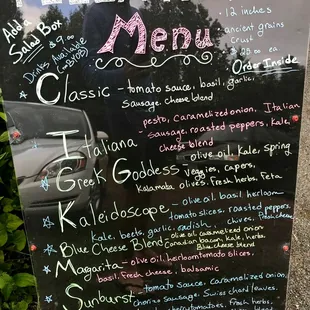 Add a
Salad
Box
$9.00
Drinks Available
(BYOB)
Menu
12 inches
ancient grains
Crust
Order Inside
Classic - tomato sauce, basil, garlic,
Sausage. Cheese blend
pesto, Caramelized onion, Italian
Italiana - sausage, roasted peppers, Kale,
cheese blend
Greek Goddess - olive oil, Kale, spring
veggies, Capers,
Kalamata olives, Fresh herbs, Feta
Kaleidoscope - olive oil, basil heirloom
tomato slices, roasted peppers
Kale, beets, garlic, radish, chives, Fresh cheese
Blue Cheese Blend - olive oil, caramelized onion
Canadian bacon, kale, herbs.
Blue cheese blend
Margarita - olive oil, heirloom tomato slices,
basil, Fresh cheese, balsamic
Sunburst - tomato sauce, Caramelized onion,
chorizo Sausage, Swiss chard leaves,
cherry tomatoes, fresh herbs,